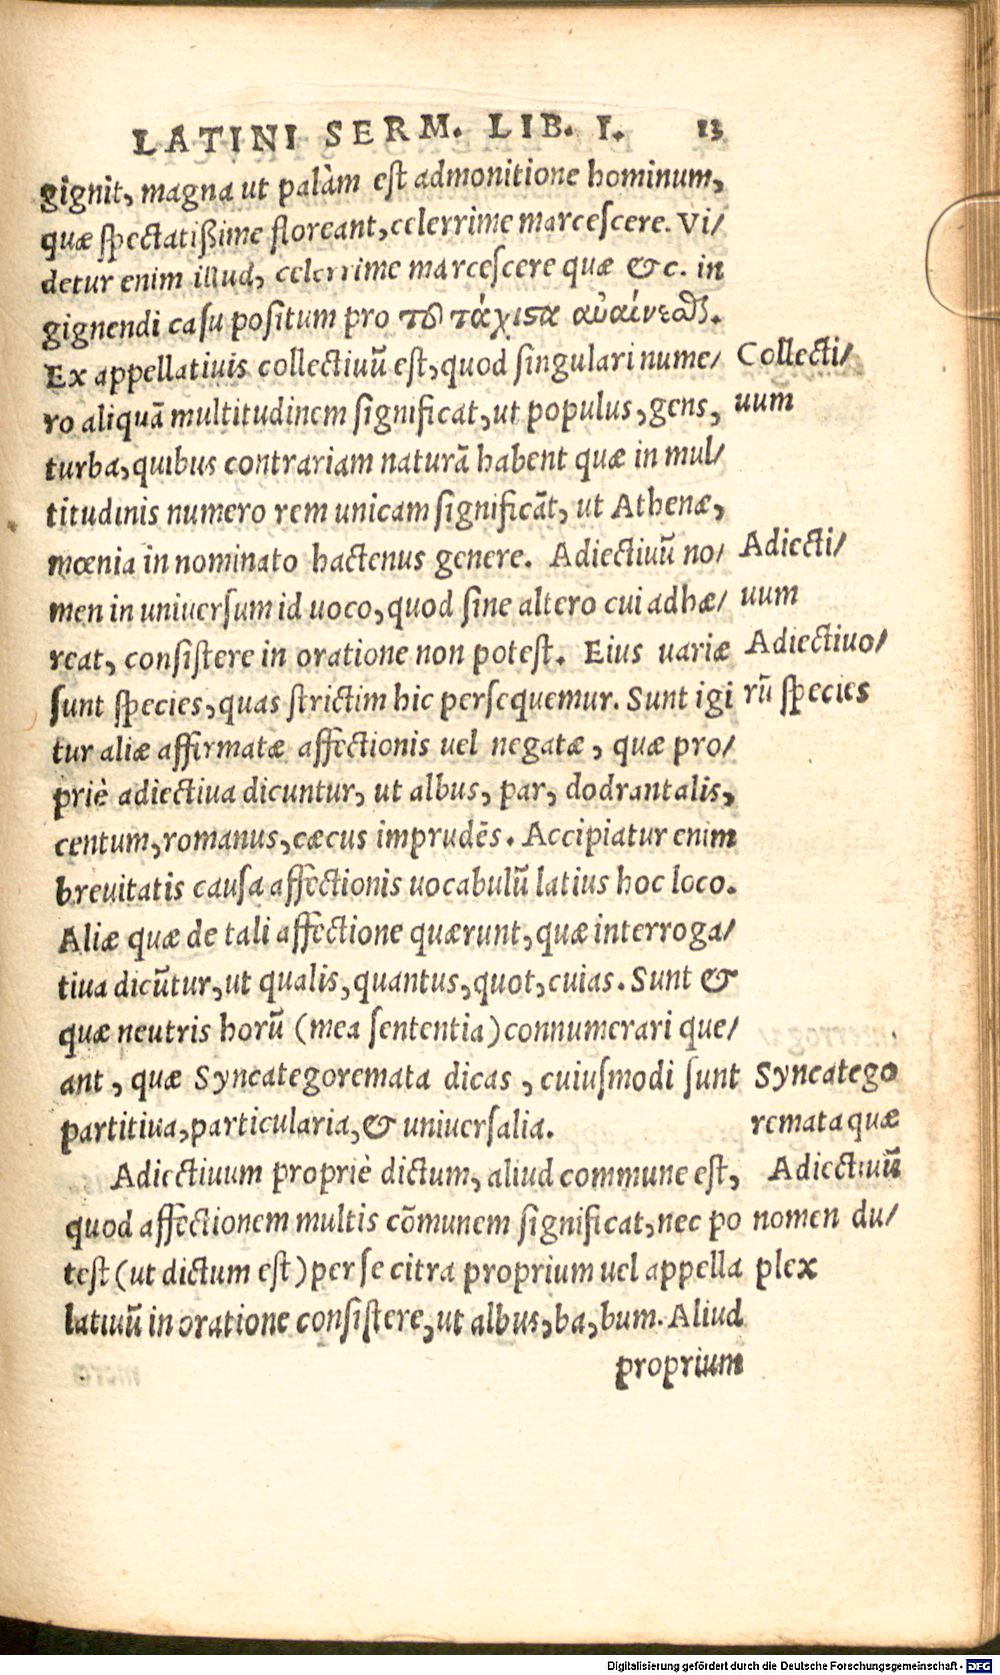 LATINI SERM. LIB. I. 13
gignit, magna ut palàm est admonitione hominum,
quæ spectatißime floreant, celerrime marcescere. Vi/
detur enim illud, celerrime marcescere quæ &c. in
gignendi casu positum pro τοῦ τάχιστα αὐαίνεσθαι.
Ex appellatiuis collectiuũ est, quod singulari nume/
ro aliquã multitudinem significat, ut populus, gens,
turba, quibus contrariam naturã habent quæ in mul/
titudinis numero rem unicam significãt, ut Athenæ,
mœnia in nominato hactenus genere. Adiectiuũ no/
men in uniuersum id uoco, quod sine altero cui adhæ/
reat, consistere in oratione non potest. Eius uariæ
sunt species, quas strictim hic persequemur. Sunt igi
tur aliæ affirmatæ affectionis uel negatæ, quæ pro/
priè adiectiua dicuntur, ut albus, par, dodrantalis,
centum, romanus, cæcus imprudẽs. Accipiatur enim
breuitatis causa affectionis uocabulũ latius hoc loco.
Aliæ quæ de tali affectione quærunt, quæ interroga/
tiua dicũtur, ut qualis, quantus, quot, cuias. Sunt &
quæ neutris horũ (mea sententia) connumerari que/
ant, quæ Syncategoremata dicas, cuiusmodi sunt
partitiua, particularia, & uniuersalia.
Adiectiuum propriè dictum, aliud commune est,
quod affectionem multis cõmunem significat, nec po
test (ut dictum est) per se citra proprium uel appella
latiuũ in oratione consistere, ut albus, ba, bum. Aliud
proprium
Collecti/
uum
Adiecti/
uum
Adiectiuo/
rũ species
Syncatego
remata quæ
Adiectiuũ
nomen du/
plex
Digitalisierung gefördert durch die Deutsche Forschungsgemeinschaft - DFG